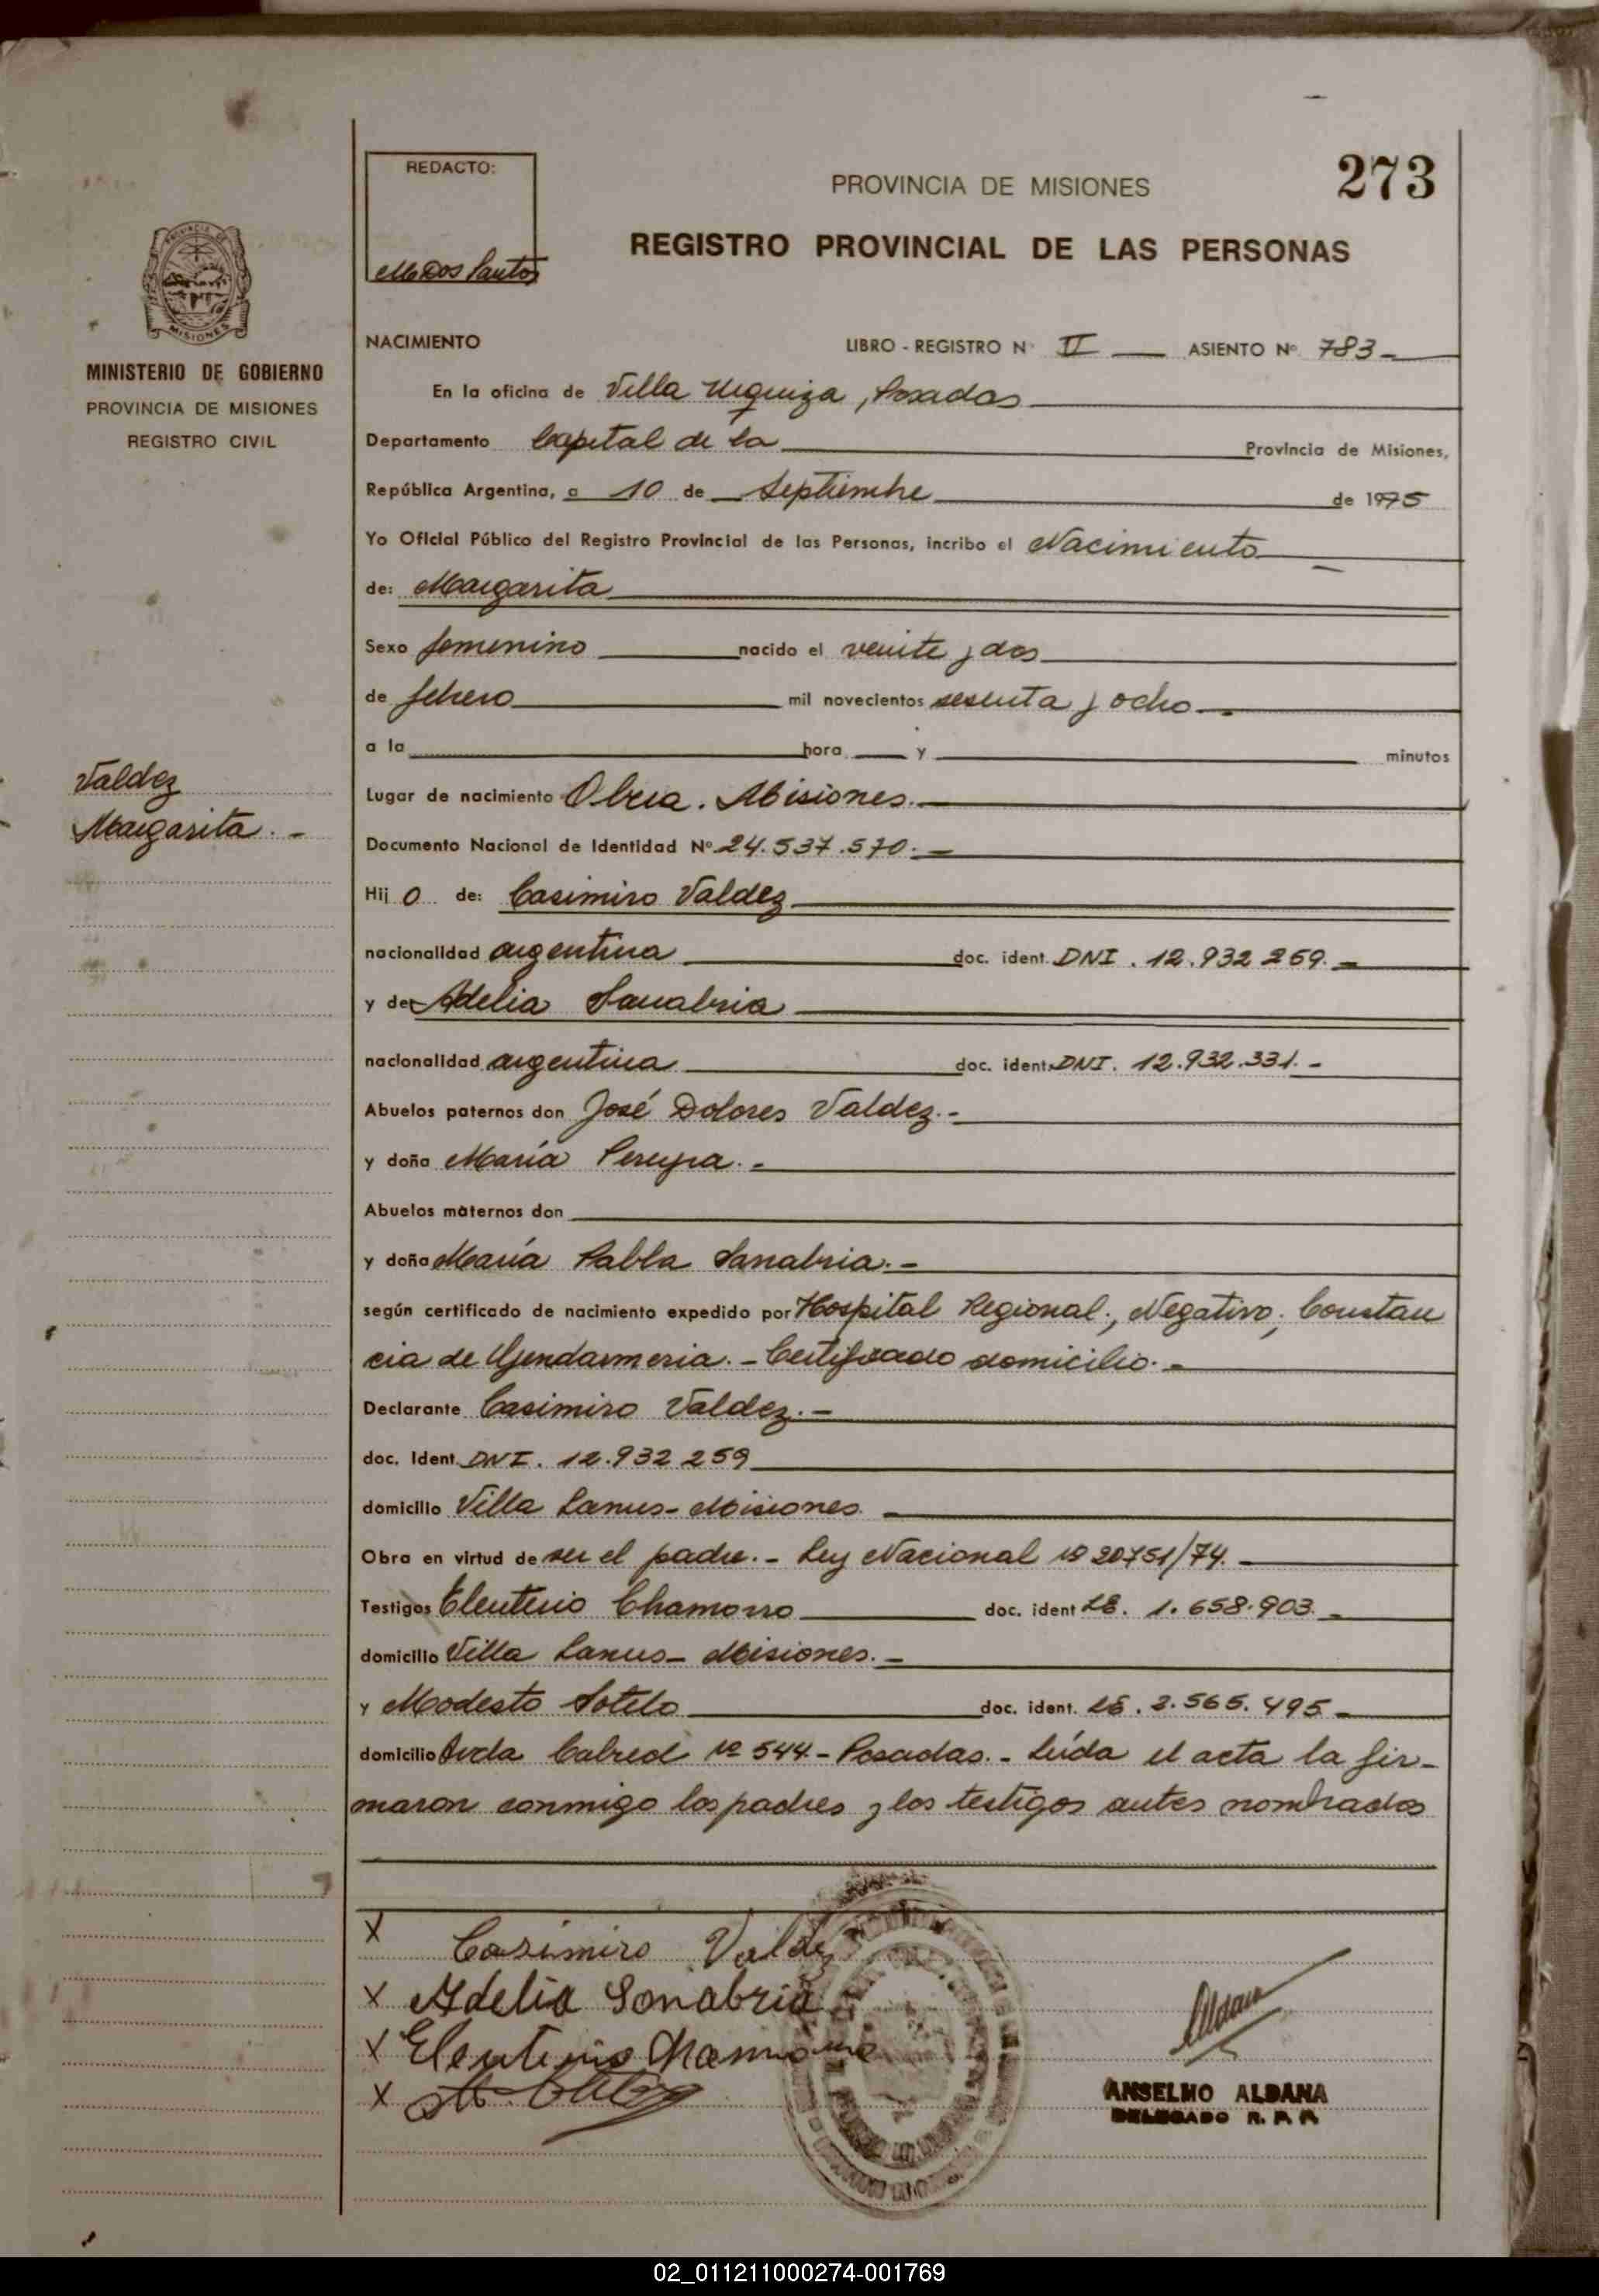 REDACTO:
M Dos Santos
273
PROVINCIA DE MISIONES
REGISTRO PROVINCIAL DE LAS PERSONAS
MISIONES
MINISTERIO DE GOBIERNO
PROVINCIA DE MISIONES
REGISTRO CIVIL
Valdez
Margarita.-
NACIMIENTO LIBRO - REGISTRO Nº II ASIENTO Nº 783-
En la oficina de Villa Urquiza, Posadas
Departamento Capital de la Provincia de Misiones,
República Argentina, a 10 de Septiembre de 1975
Yo Oficial Público del Registro Provincial de las Personas, incribo el Nacimiento
de: Margarita
Sexo femenino nacido el veinte y dos
de febrero mil novecientos sesenta y ocho.-
a la hora y minutos
Lugar de nacimiento Obera. Misiones.-
Documento Nacional de Identidad Nº 24.537.570.-
Hij o de: Casimiro Valdez
nacionalidad argentina doc. ident. DNI. 12.932 259.-
y de: Adelia Sanabria
nacionalidad argentina doc. ident. DNI. 12.932.331.-
Abuelos paternos don José Dolores Valdez.-
y doña María Pereyra.-
Abuelos maternos don
y doña María Pabla Sanabria.-
según certificado de nacimiento expedido por Hospital Regional; Negativo; Constan
cia de Gendarmeria.- Certificado domicilio.-
Declarante Casimiro Valdez.-
doc. Ident. DNI. 12.932 259
domicilio Villa Lanus- Misiones.
Obra en virtud de ser el padre.- Ley Nacional Nº 20751/74.-
Testigos Eleuterio Chamorro doc. ident LE. 1.658.903.-
domicilio Villa Lanus- Misiones.-
y Modesto Sotelo doc. ident. LE. 2.565.495-
domicilio Avda Cabred Nº 544.- Posadas.- Leída el acta la fir-
maron conmigo los padres y los testigos antes nombrados
X Casimiro Valdez
X Adelia Sonabria
X Eleuterio Chamorro
X
Aldana
ANSELMO ALDANA
DELEGADO R. P. P.
02_011211000274-001769